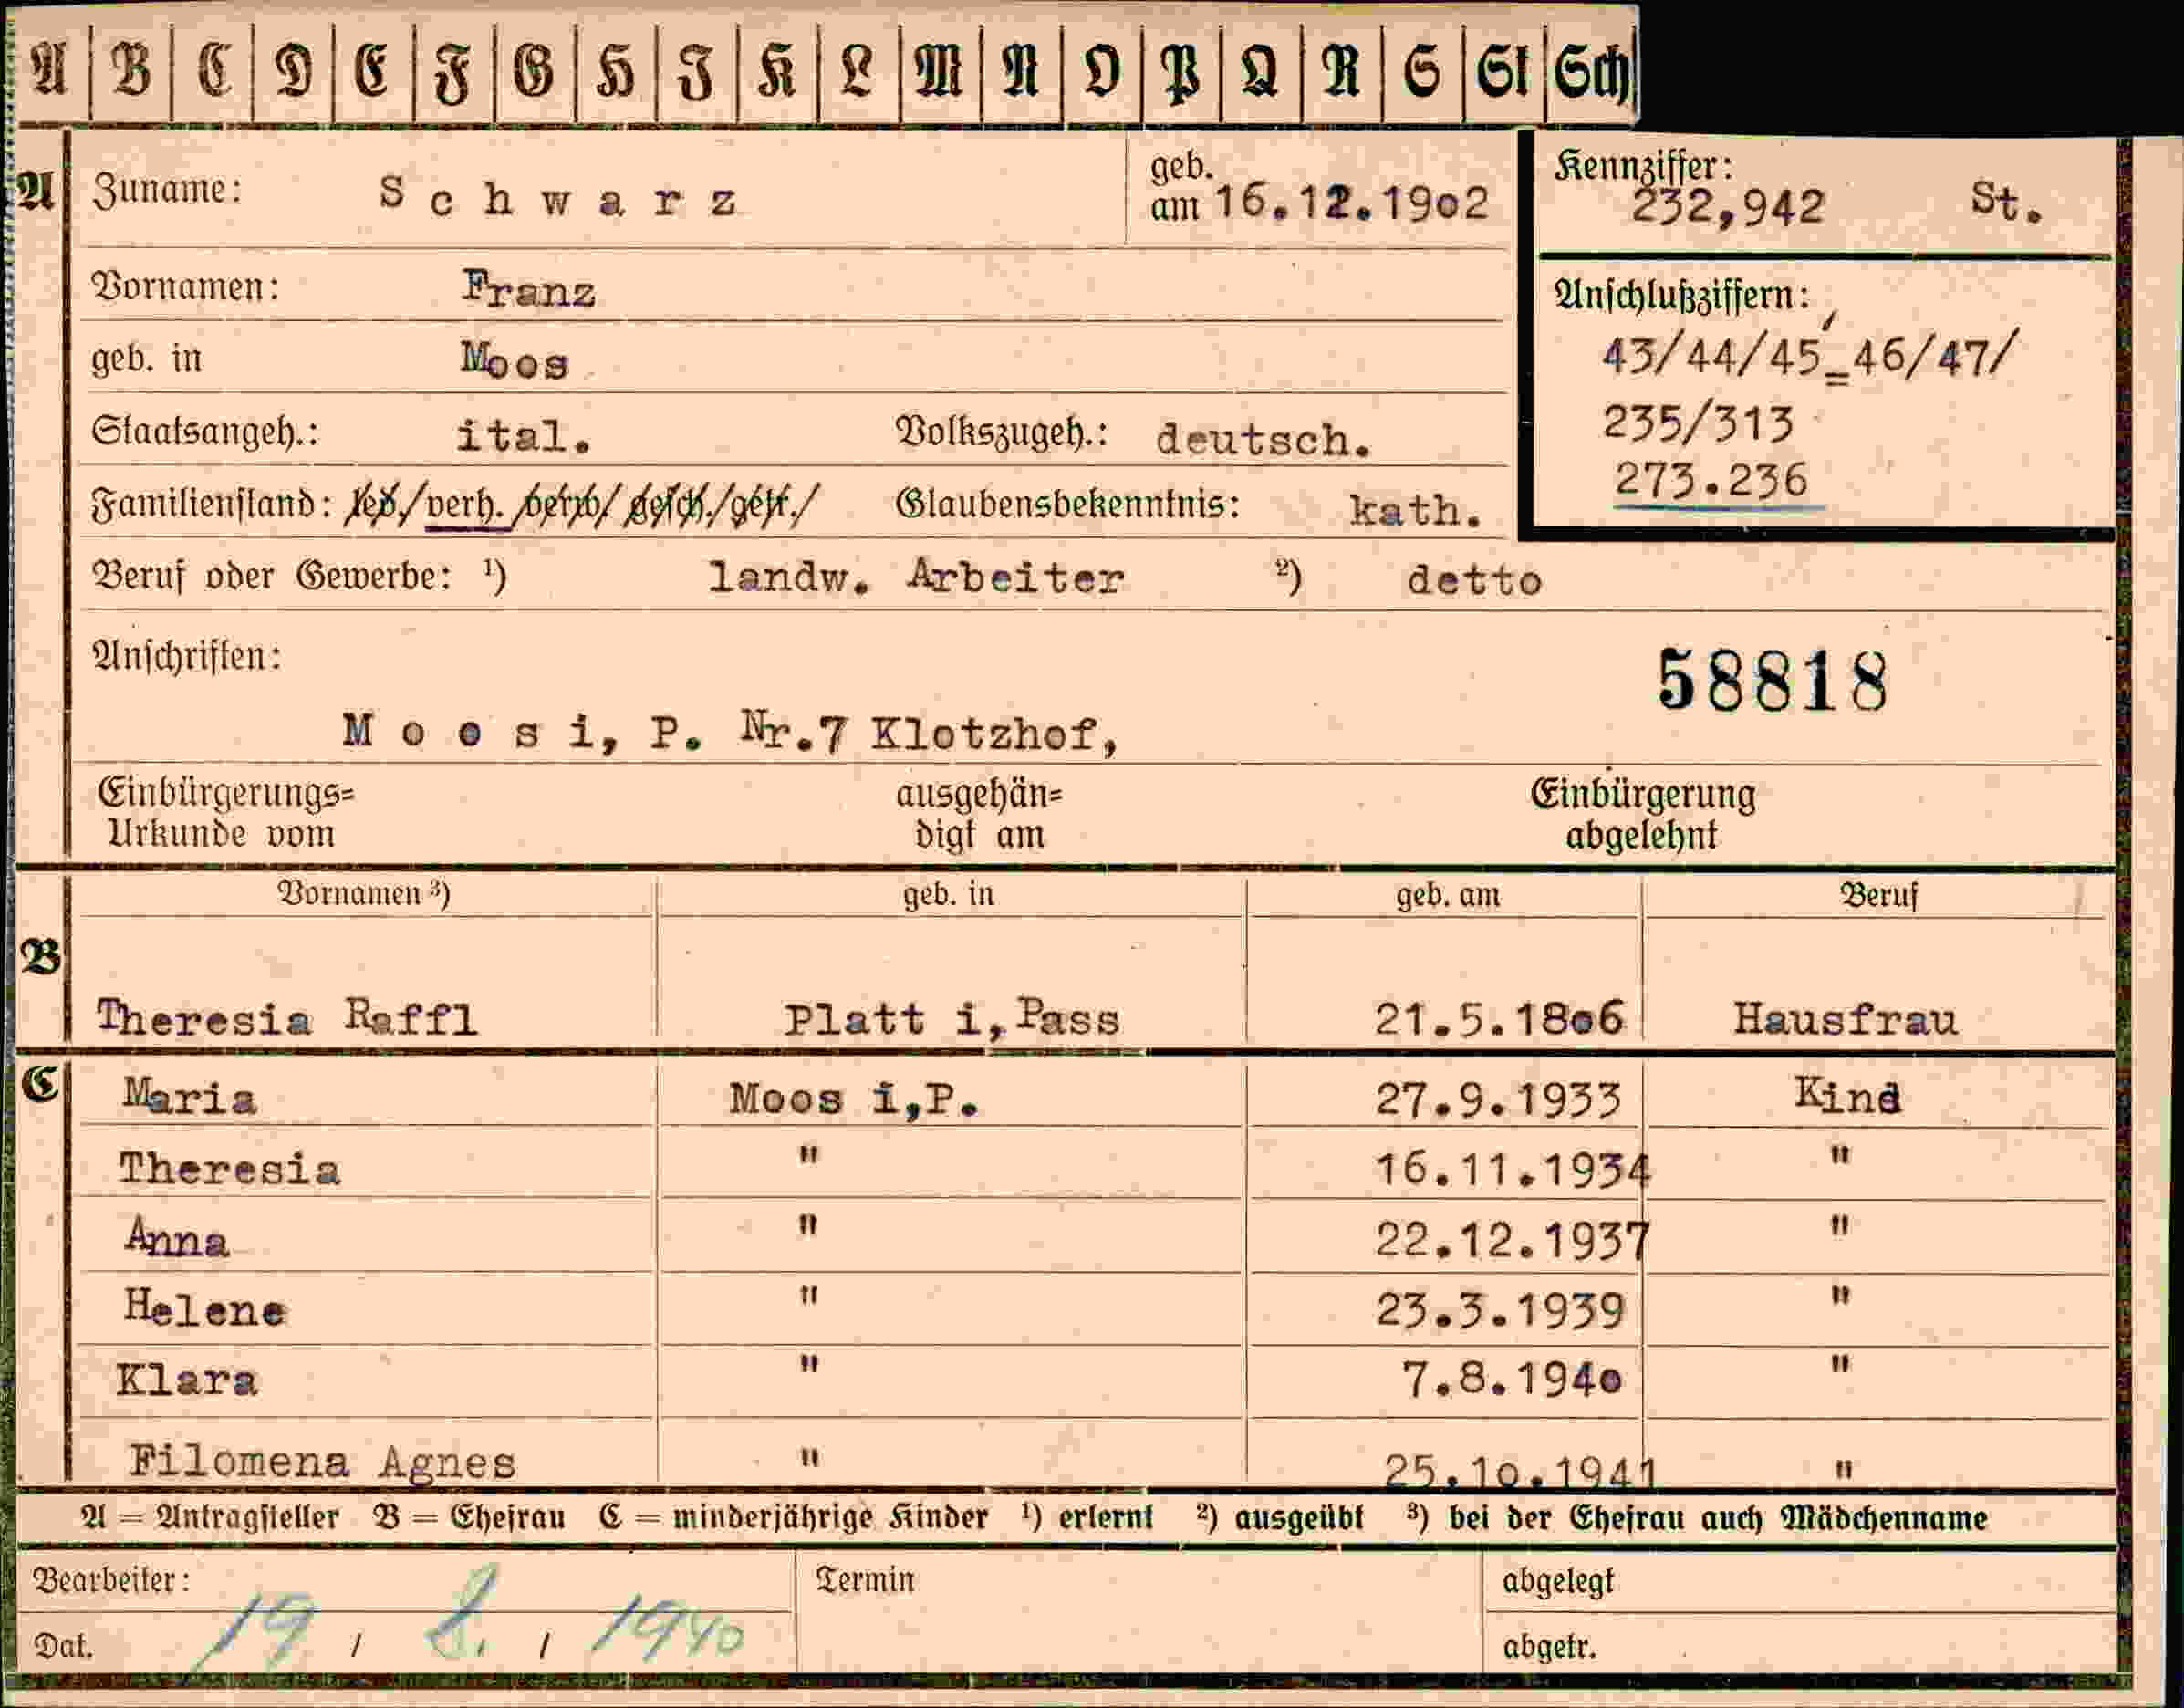 A B C D E F G H I K L M N O P Q R S St Sch
A Zuname: Schwarz geb. am 16.12.19o2 Kennziffer: 232,942 St.
Vornamen: Franz
geb. in Moos
Anschlußziffern:
43/44/45=46/47/
235/313
273.236
Staatsangeh.: ital. Volkszugeh.: deutsch.
Familienstand: led/verh. verw/gesch./getr./ Glaubensbekenntnis: kath.
Beruf oder Gewerbe: ¹) landw. Arbeiter ²) detto
Anschriften:
58818
Moos i, P. Nr.7 Klotzhof,
Einbürgerungs=
Urkunde vom
ausgehän=
digt am
Einbürgerung
abgelehnt
Vornamen ³) geb. in geb. am Beruf
B Theresia Raffl Platt i,Pass 21.5.18o6 Hausfrau
C Maria Moos i,P. 27.9.1933 Kind
Theresia " 16.11.1934 "
Anna " 22.12.1937 "
Helene " 23.3.1939 "
Klara " 7.8.194o "
Filomena Agnes " 25.1o.1941 "
A = Antragsteller B = Ehefrau C = minderjährige Kinder ¹) erlernt ²) ausgeübt ³) bei der Ehefrau auch Mädchenname
Bearbeiter: Termin abgelegt
Dat. 19 / 8. / 1940 abgetr.